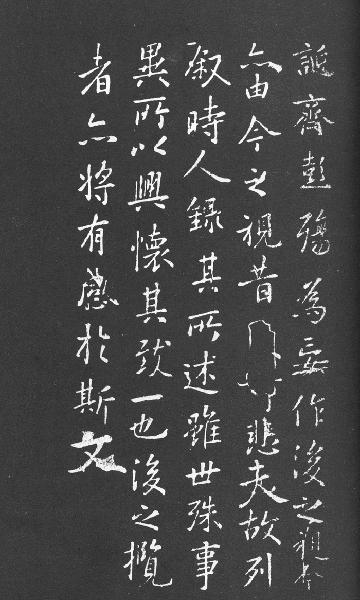 誕齊彭殤為妄作後之視今
亦由今之視昔悲夫故列
叙時人錄其所述雖世殊事
異所以興懷其致一也後之攬
者亦將有感於斯文